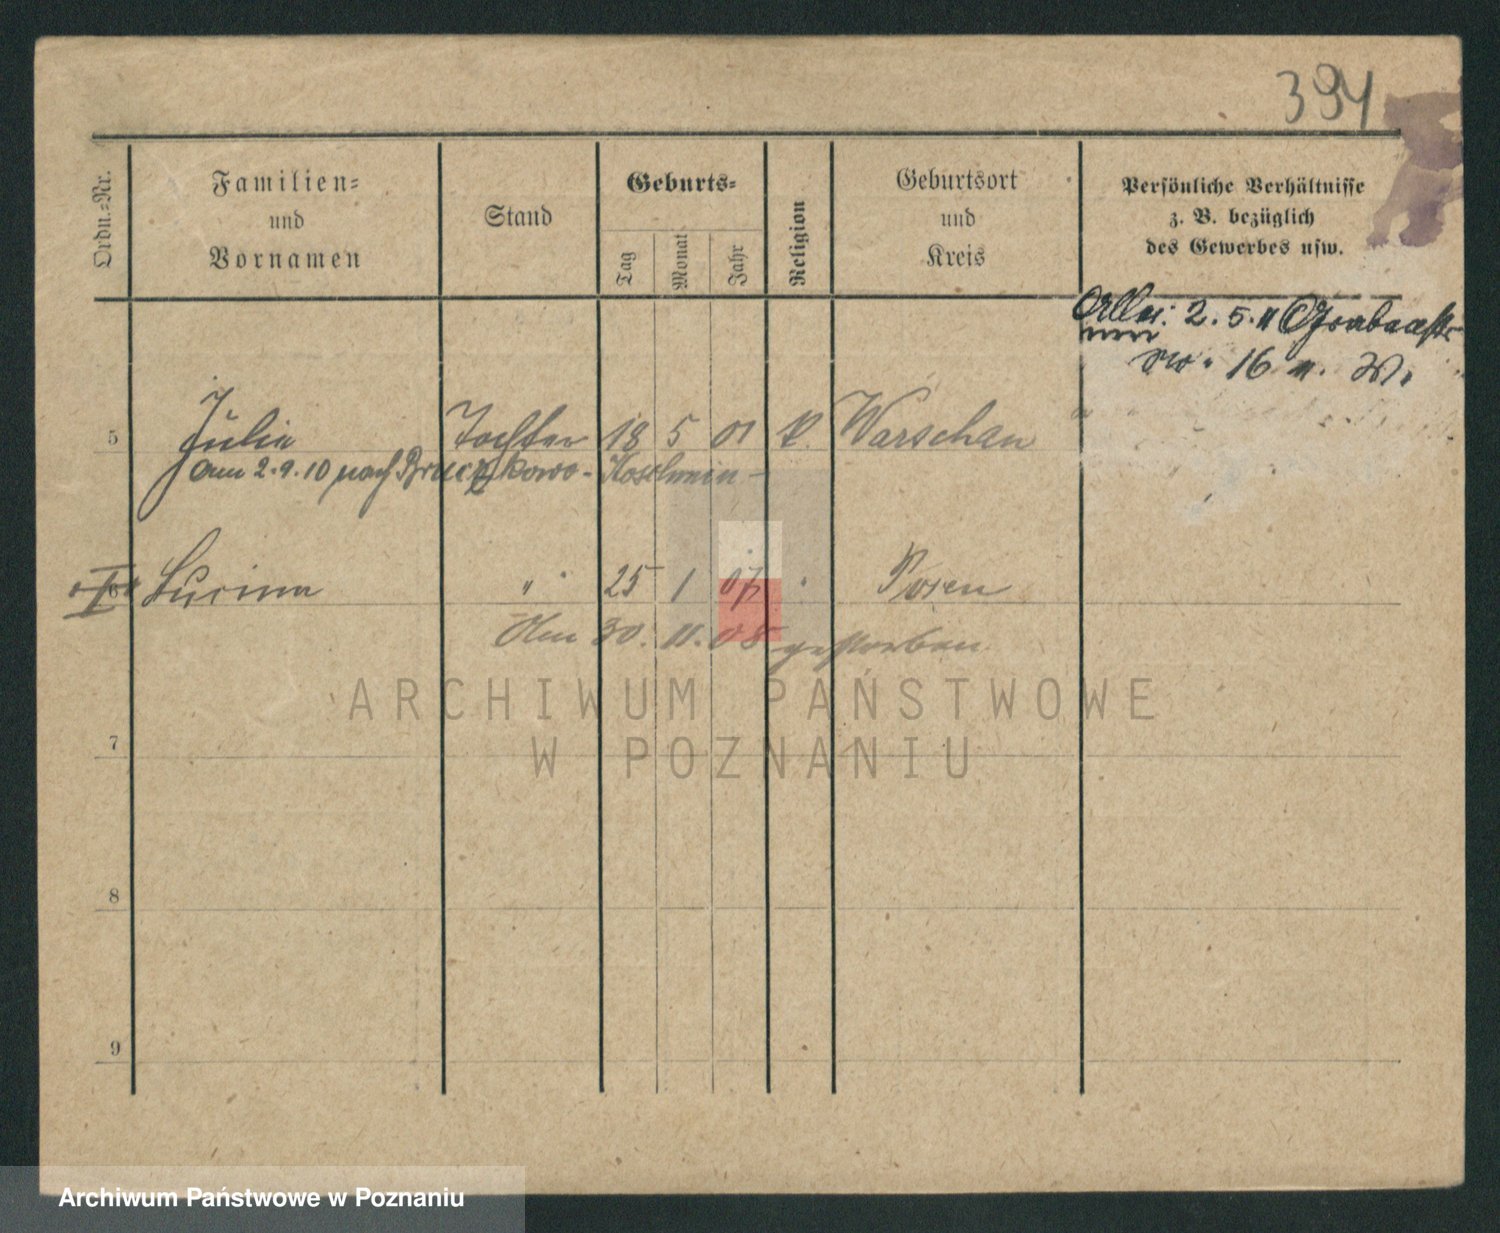 394
Ordn.-Nr.
Familien-
und
Vornamen
Stand
Geburts-
Tag
Monat
Jahr
Religion
Geburtsort
und
Kreis
Persönliche Verhältnisse
z. B. bezüglich
des Gewerbes usw.
2. 5. 11
16
5 Julia Tochter 18 5 01 k. Warschau
am 2.9.10 nach
6 Lucina " 25 1 07 " Posen
Am 30. 11. 08 gestorben
7
8
9
ARCHIWUM PAŃSTWOWE
W POZNANIU
Archiwum Państwowe w Poznaniu